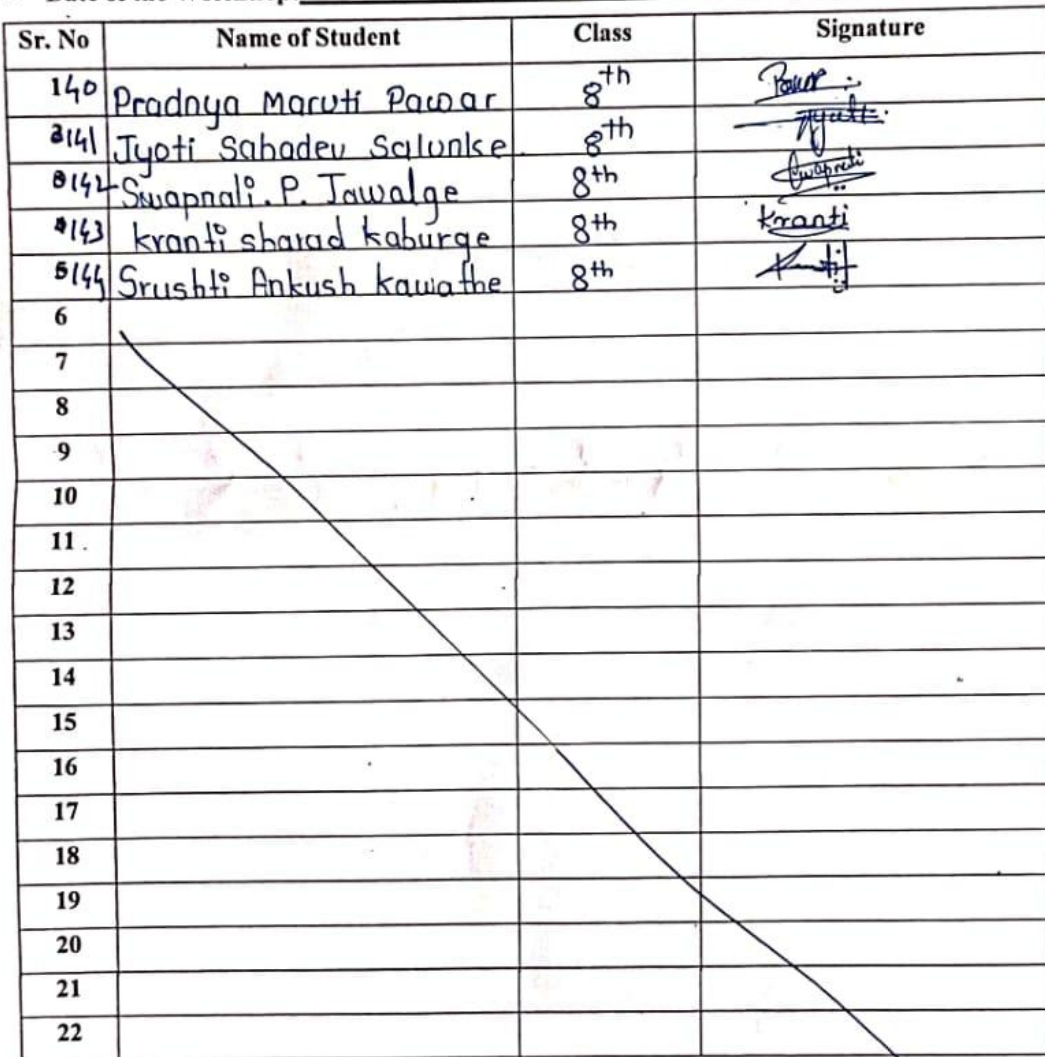 Sr. No Name of Student Class Signature
140 Pradnya Maruti Pawar 8th
141 Jyoti Sahadev Salunke 8th
142 Swapnali. P. Jawalge 8th Swapnali
143 kranti sharad kaburge 8th Kranti
144 Srushti Ankush kawathe 8th
6
7
8
9
10
11
12
13
14
15
16
17
18
19
20
21
22